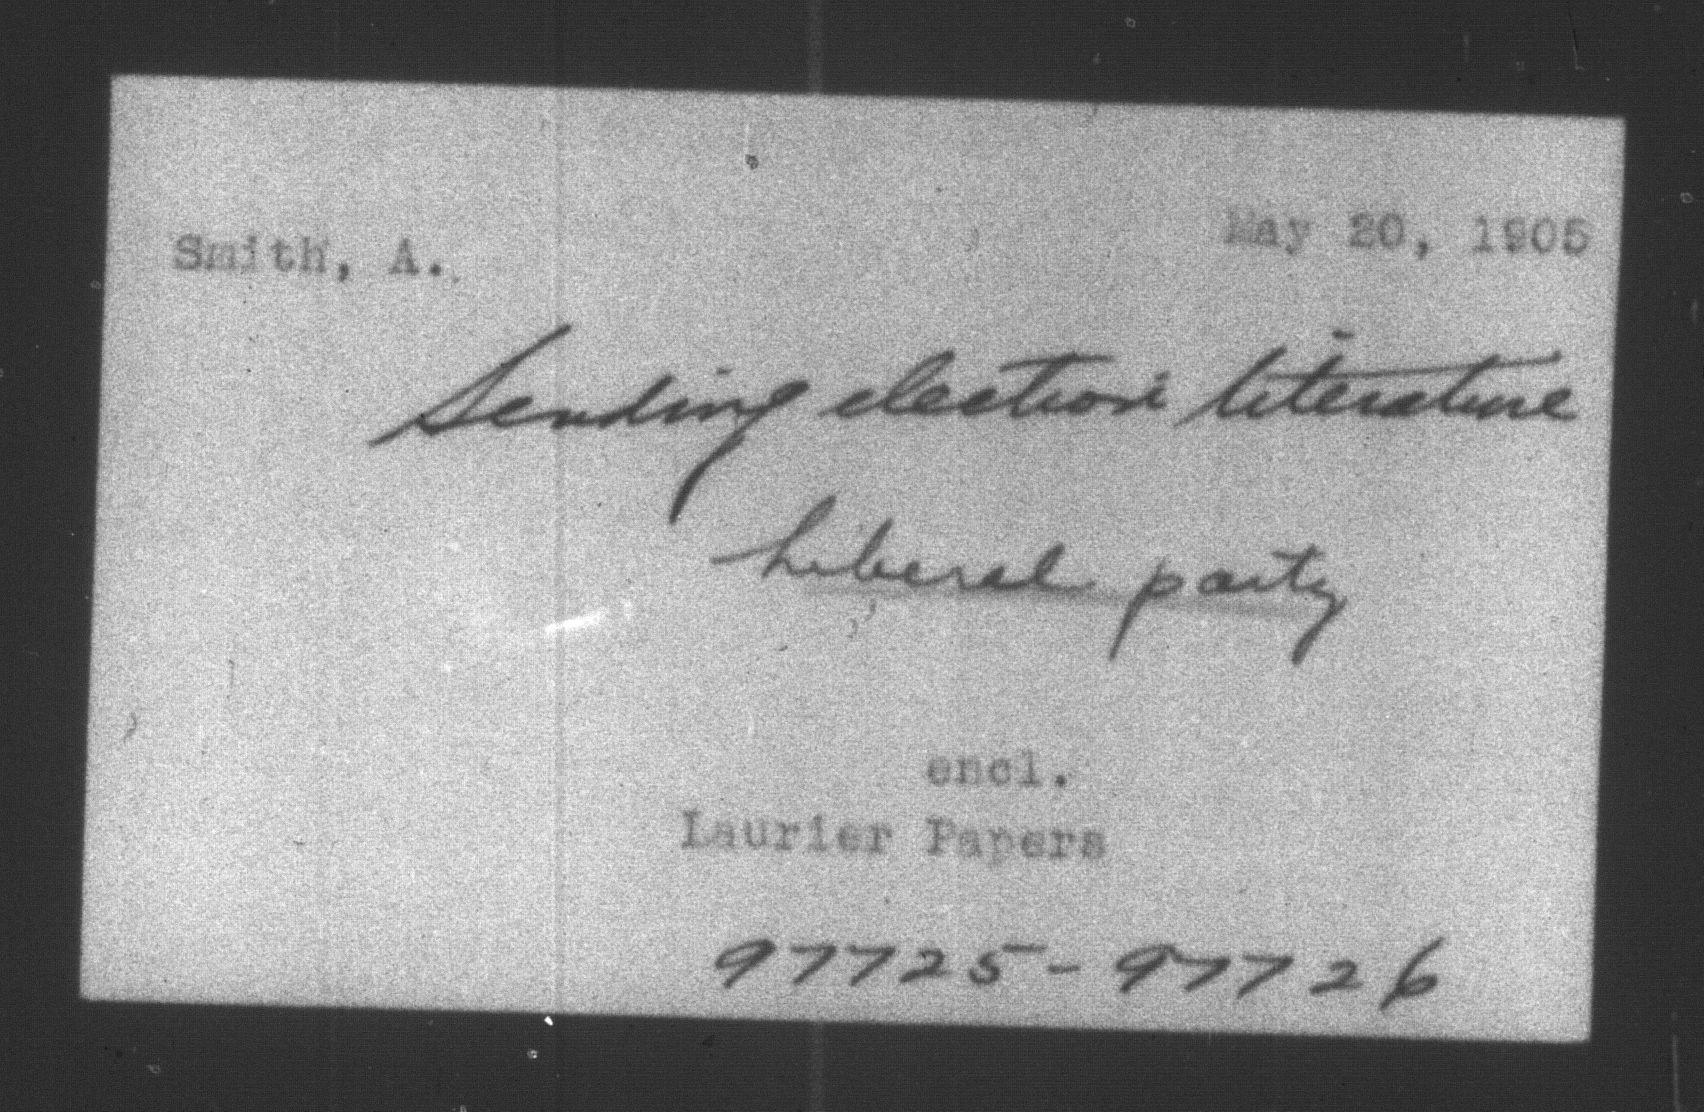 Smith, A.
May 20, 1905
Sending election literature
Liberal party
encl.
Laurier Papers
97725-97726